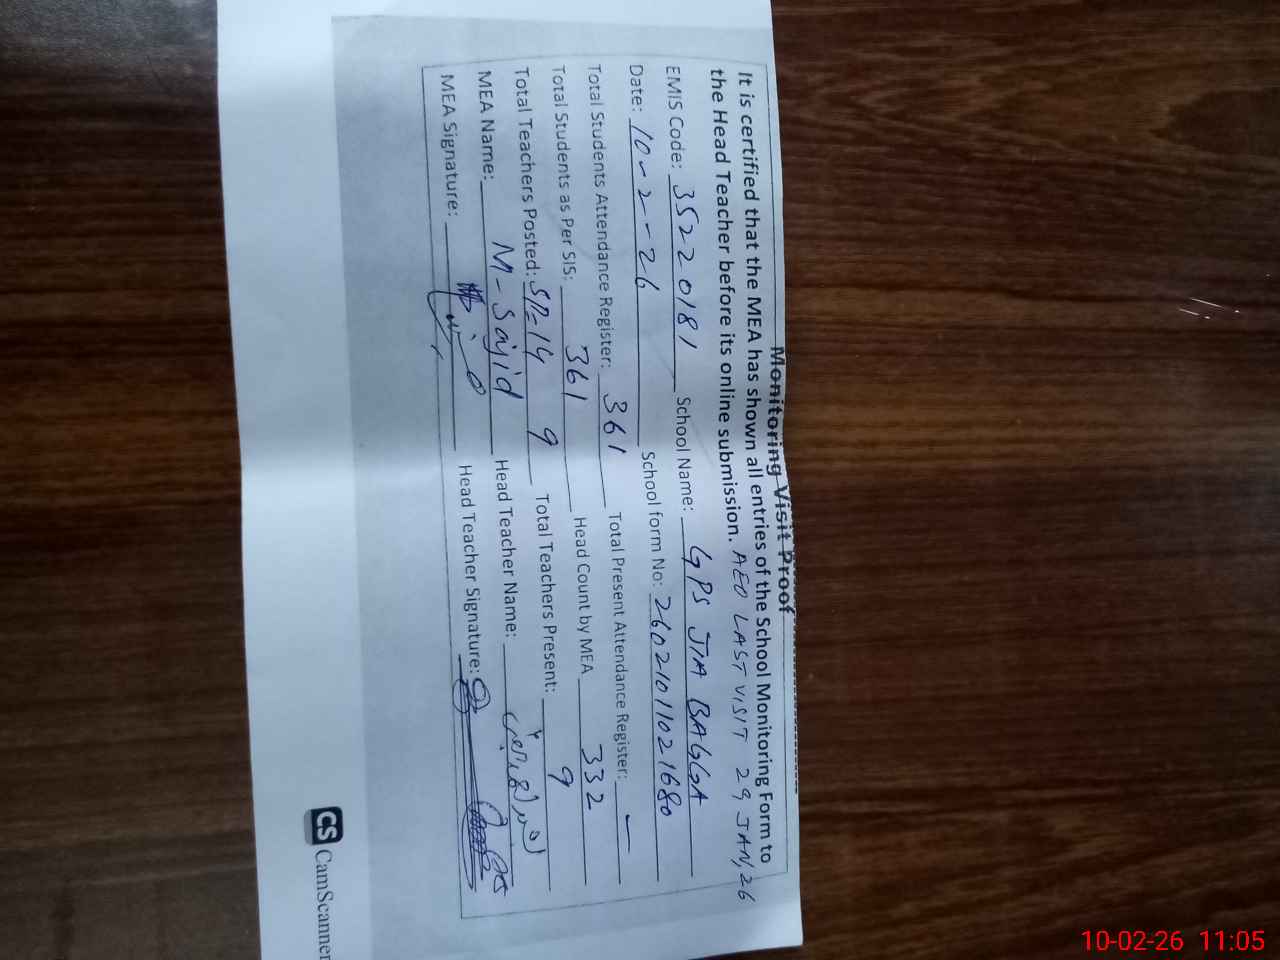 Monitoring Visit Proof
It is certified that the MEA has shown all entries of the School Monitoring Form to
the Head Teacher before its online submission. AEO LAST VISIT 29 JAN, 26
EMIS Code: 35220181 School Name: GPS JIA BAGGA
Date: 10-2-26 School form No: 26021011021680
Total Students Attendance Register: 361 Total Present Attendance Register: —
Total Students as Per SIS: 361 Head Count by MEA 332
Total Teachers Posted: SP=14 9 Total Teachers Present: 9
MEA Name: M-Sajid Head Teacher Name:
MEA Signature: Head Teacher Signature:
CS CamScanner
10-02-26 11:05